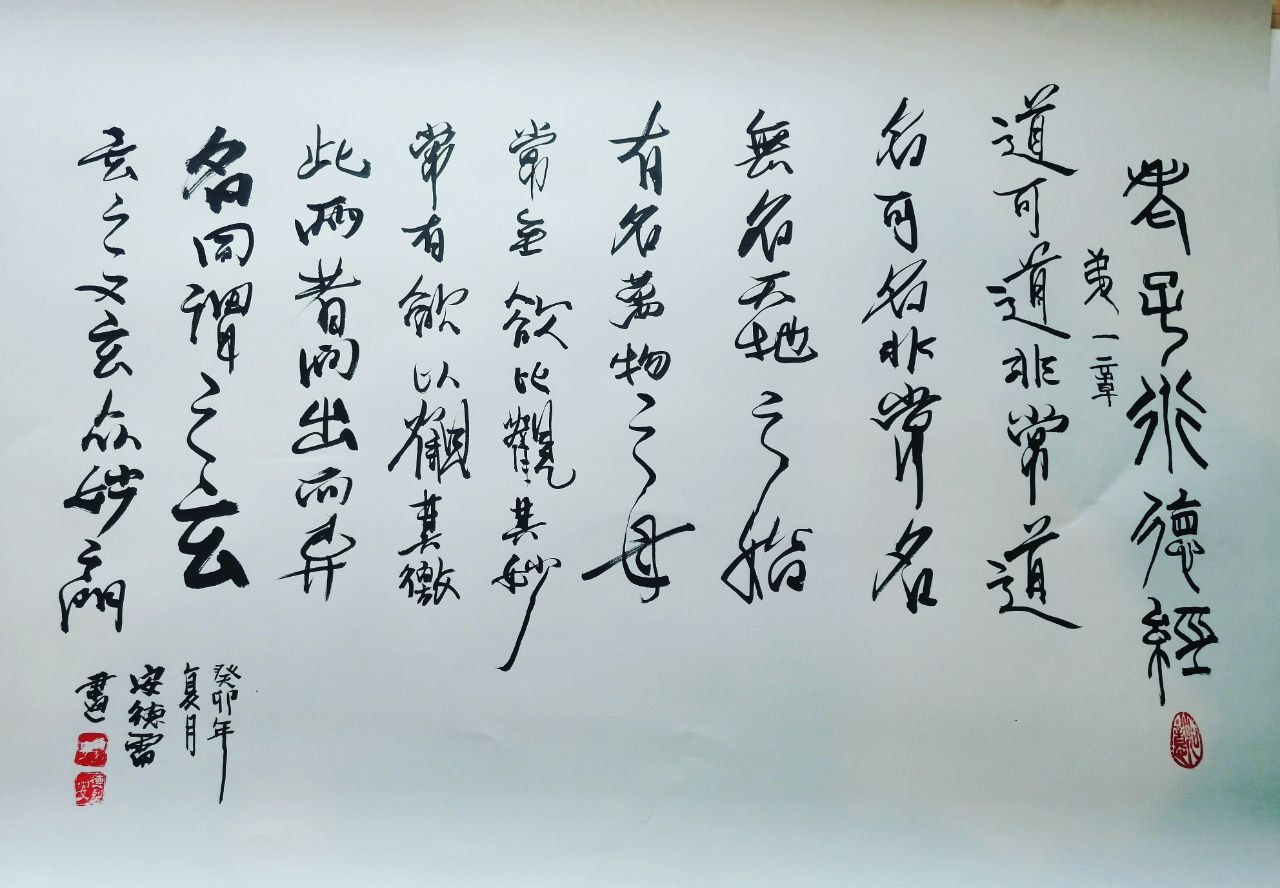 老子道德經
第一章
道可道非常道
名可名非常名
無名天地之始
有名萬物之母
常無欲以觀其妙
常有欲以觀其徼
此兩者同出而異
名同謂之玄
玄之又玄眾妙之門
癸卯年
夏月
安德雷
書